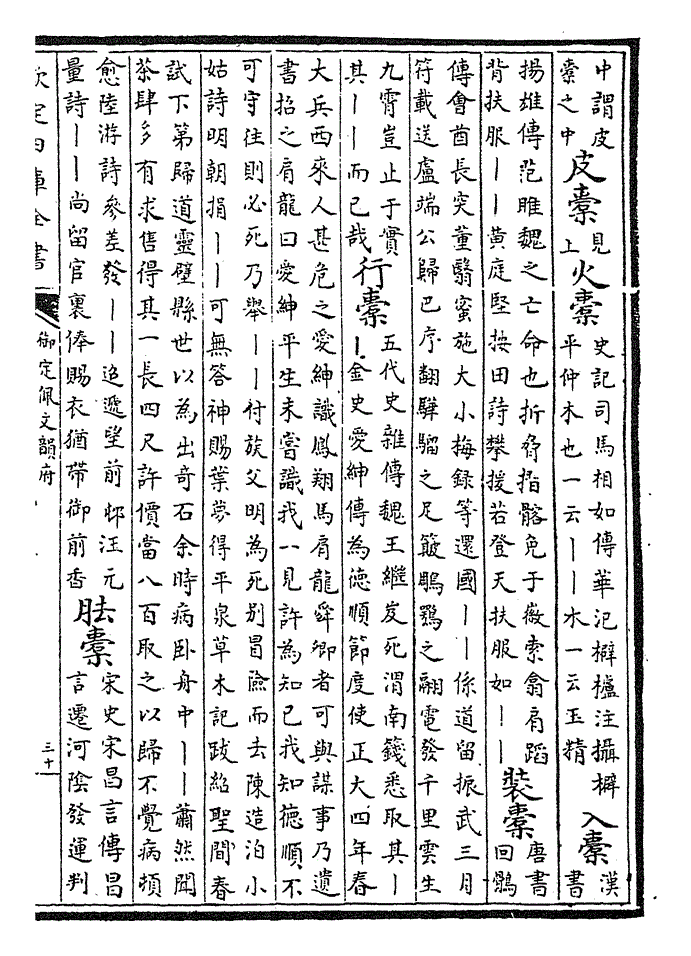 中謂皮
橐之中
皮橐
見
上
火橐
史記司馬相如傳華汜檘櫨注攝檘
平仲木也一云丨丨木一云玉精
入橐
漢
書
揚雄傳范雎魏之亡命也折脅拉髂免于徽索翕肩蹈
背扶服丨丨黄庭堅按田詩攀援若登天扶服如丨丨
裝橐
唐書
回鶻
傳會酋長突董翳蜜施大小梅録等還國丨丨係道留振武三月
符載送盧端公歸巴序翻驊騮之足簸鵰鶚之翮電發千里雲生
九霄豈止于實
其丨丨而已哉
行橐
五代史雜傳魏王繼岌死渭南籛悉取其丨
丨金史愛紳傳為德順節度使正大四年春
大兵西來人甚危之愛紳識鳳翔馬肩龍舜卿者可與謀事乃遺
書招之肩龍曰愛紳平生未嘗識我一見許為知已我知德順不
可守往則必死乃舉丨丨付族父明為死别冒險而去陳造泊小
姑詩明朝捐丨丨可無答神賜葉夢得平泉草木記跋紹聖間春
試下第歸道靈壁縣世以為出奇石余時病卧舟中丨丨蕭然聞
茶肆多有求售得其一長四尺許價當八百取之以歸不覺病頓
愈陸游詩參差發丨丨迢遞望前邨汪元
量詩丨丨尚留官裏俸賜衣猶帶御前香
胠橐
宋史宋昌言傳昌
言遷河陰發運判
欽定四庫全書
御定佩文韻府
三十